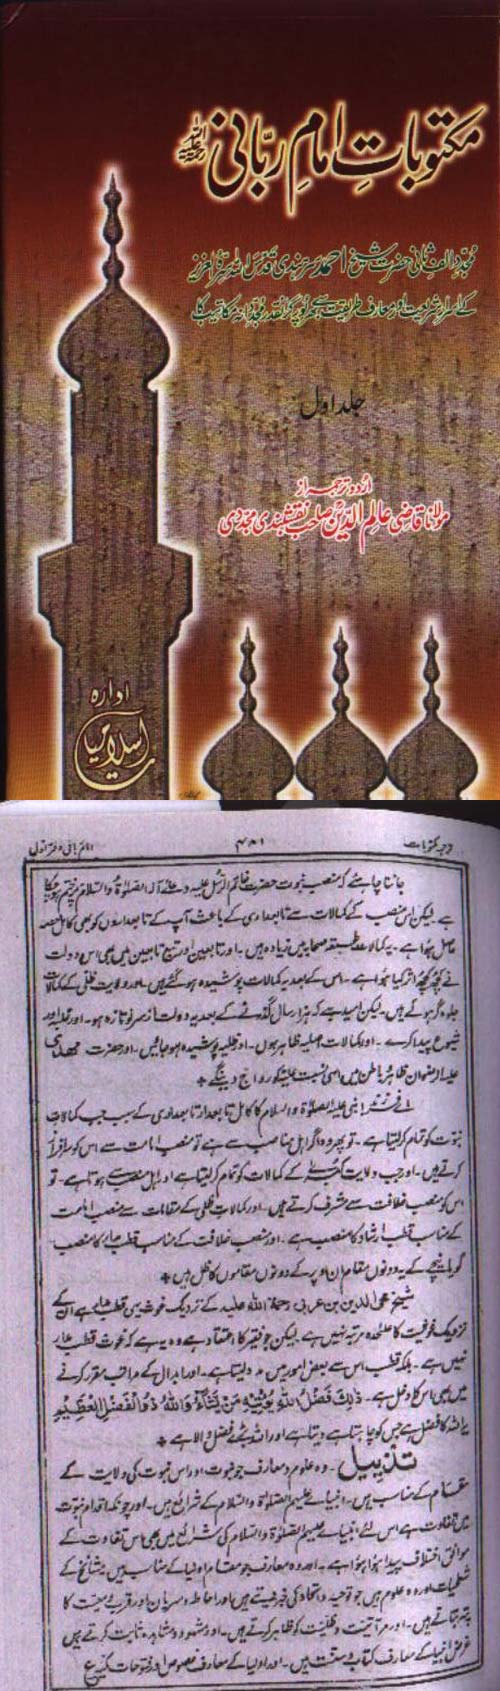 مکتوباتِ امامِ ربّانی رحمۃ اللہ علیہ
مجدد الف ثانی حضرت شیخ احمد سرہندی قدس اللہ سرہ العزیز
کے اسرار شریعت اور معارف طریقت سے بھرپور گرانقدر مجددانہ مکاتیب کا
جلد اول
اردو ترجمہ از
مولانا قاضی عالم الدین صاحب نقشبندی مجددی
ادارہ
اسلامیات
ترجمہ مکتوبات
امام ربانی دفتر اول
جاننا چاہئے کہ منصب نبوت حضرت خاتم الرسل علیہ وعلےٰ آلہ الصلوٰۃ والسلام پر ختم ہو چکا
ہے لیکن اس منصب کے کمالات سے تابعداری کے باعث آپ کے تابعداروں کو بھی کامل حصہ
حاصل ہوا ہے۔ یہ کمالات طبقہ صحابہ میں زیادہ ہیں۔ اور تابعین اور تبع تابعین میں بھی اس دولت
نے کچھ کچھ اثر کیا ہوا ہے۔ اس کے بعد یہ کمالات پوشیدہ ہو گئے ہیں۔ اور ولایت ظلی کے کمالات
جلوہ گر ہوئے ہیں۔ لیکن امید ہے کہ ہزار سال گذرنے کے بعد یہ دولت از سر نو تازہ ہو۔ اور غلبہ اور
شیوع پیدا کرے۔ اور کمالات اصلیہ ظاہر ہوں۔ اور ظلیہ پوشیدہ ہو جائیں۔ اور حضرت مہدی
علیہ الرضوان ظاہر باطن میں اسی نسبت علیہ کو رواج دینگے
اے فرزند! نبی علیہ الصلوٰۃ والسلام کا کامل تابعدار تابعداری کے سبب جب کمالات
نبوت کو تمام کر لیتا ہے۔ تو پھر وہ اگر اہل مناصب سے ہے تو منصب امامت سے اس کو سرافراز
کرتے ہیں۔ اور جب ولایت کبریٰ کے کمالات کو تمام کر لیتا ہے اور اہل منصب سے ہوتا ہے۔ تو
اس کو منصب خلافت سے مشرف کرتے ہیں۔ اور کمالات ظلی کے مقامات سے منصب امامت
کے مناسب قطب ارشاد کا منصب ہے۔ اور منصب خلافت کے مناسب قطب مدار کا منصب
گویا نیچے کے یہ دونوں مقام ان اوپر کے دونوں مقاموں کا ظل ہیں
شیخ محی الدین بن عربی رحمۃ اللہ علیہ کے نزدیک غوث یہی قطب مدار ہے ان کے
نزدیک غوثیت کا علیحدہ مرتبہ نہیں ہے۔ لیکن جو فقیر کا اعتقاد ہے وہ یہ ہے کہ غوث قطب مدار
نہیں ہے۔ بلکہ قطب اس سے بعض امور میں مدد لیتا ہے۔ اور ابدال کے مراتب مقرر کرنے
میں بھی اس کا دخل ہے۔ ذٰلِكَ فَضْلُ اللّٰهِ يُؤْتِيْهِ مَنْ يَّشَآءُ وَاللّٰهُ ذُو الْفَضْلِ الْعَظِيْمِ
یہ اللہ کا فضل ہے جس کو چاہتا ہے دیتا ہے اور اللہ بڑے فضل والا ہے
تذییل۔ وہ علوم و معارف جو نبوت اور اس نبوت کی ولایت کے
مقام کے مناسب ہیں۔ انبیائے علیہم الصلوٰۃ والسلام کے شرائع ہیں۔ اور چونکہ اقدام نبوت
میں تفاوت ہے اس لئے انبیائے علیہم الصلوٰۃ والسلام کی شرائع میں بھی اس تفاوت کے
موافق اختلاف پیدا ہوا ہوا ہے۔ اور وہ معارف جو مقام اولیا کے مناسب ہیں۔ مشائخ کے
شطحیات اور وہ علوم ہیں جو توحید و اتحاد کی خبر دیتے ہیں اور احاطہ و سریان اور قرب و معیت کا
پتہ بتاتے ہیں۔ اور مرآتیت و ظلیت کو ظاہر کرتے ہیں۔ اور شہود و مشاہدہ ثابت کرتے ہیں
غرض انبیا کے معارف کتاب و سنت ہیں۔ اور اولیا کے معارف فصوص اور فتوحات مکیہ